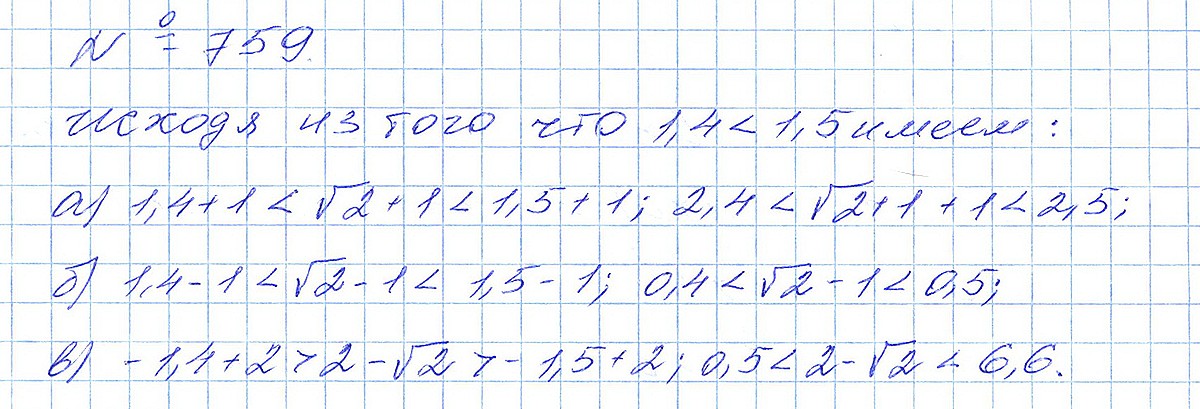 № 759.
исходя из того что 1,4 < 1,5 имеем:
а) 1,4 + 1 < √2 + 1 < 1,5 + 1; 2,4 < √2 + 1 + 1 < 2,5;
б) 1,4 - 1 < √2 - 1 < 1,5 - 1; 0,4 < √2 - 1 < 0,5;
в) - 1,4 + 2 > 2 - √2 > - 1,5 + 2; 0,5 < 2 - √2 < 6,6.